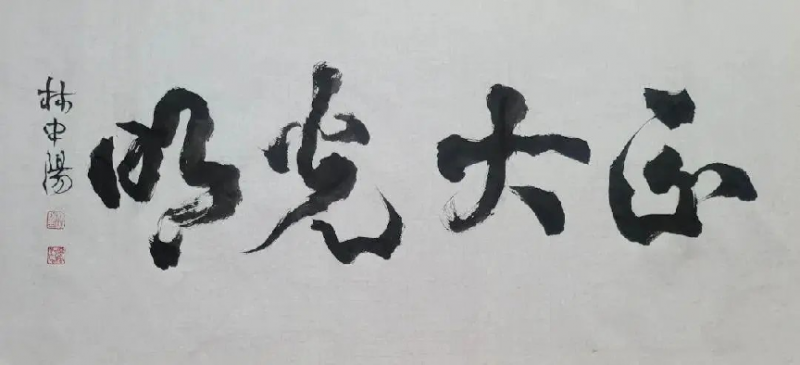 正大光明
林中陽